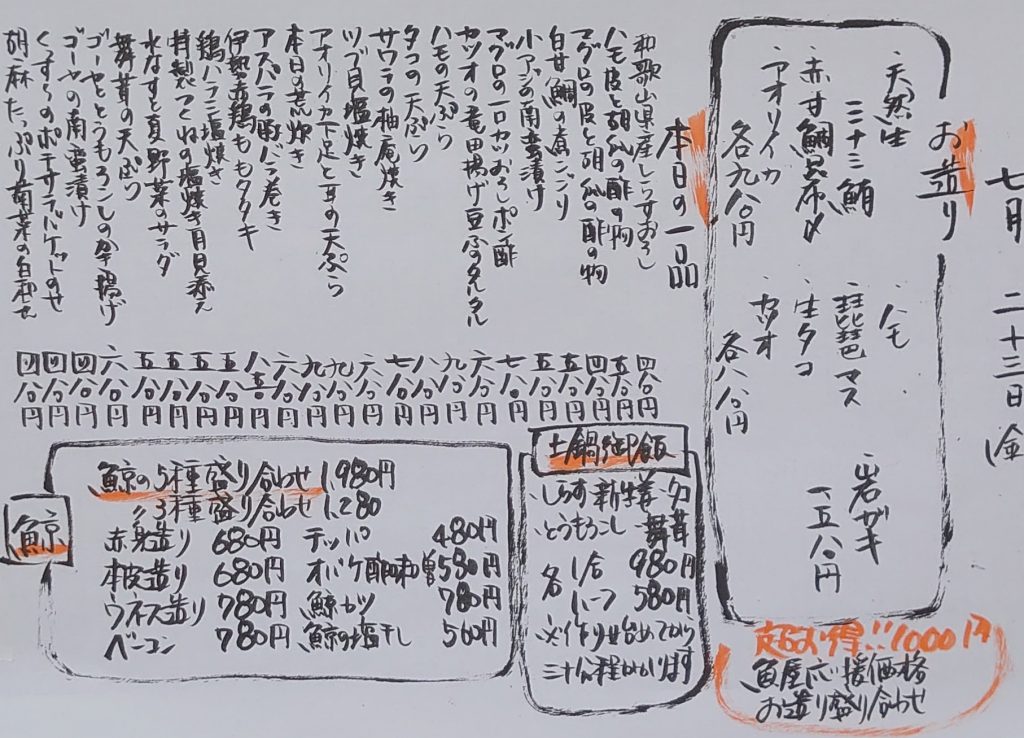 七月 二十三日(金)
お造り
・天然生ミナミ鮪
・赤甘鯛昆布〆
・アオリイカ
各九八〇円
・ハモ
・琵琶マス
・生タコ
・カツオ
各八八〇円
・岩ガキ
一五八〇円
超お得!!1000円
魚屋応援価格
お造り盛り合わせ
本日の一品
和歌山県産しらすおろし 四八〇円
ハモ皮と胡瓜の酢の物 五八〇円
マグロの皮と胡瓜の酢の物 四八〇円
白甘鯛の煮こごり 五八〇円
小アジの南蛮漬け 五八〇円
マグロの一口カツおろしポン酢 七八〇円
カツオの竜田揚げ豆ふのタルタル 六八〇円
ハモの天ぷら 九八〇円
タコの天ぷら 八八〇円
サワラの柚庵焼き 七八〇円
ツブ貝塩焼き 六八〇円
アオリイカ下足と耳の天ぷら 九八〇円
本日の荒炊き 九八〇円
アスパラの豚バラ巻き 六八〇円
伊勢赤鶏ももタタキ
鶏ハラミ塩焼き 五八〇円
特製つくねの塩焼き月見添え 五八〇円
水なすと夏野菜のサラダ 五八〇円
舞茸の天ぷら 五八〇円
ゴーヤととうもろこしの発揚げ 六八〇円
ゴーヤの南蛮漬け 四八〇円
くんすくのポテサラバケットのせ 四八〇円
胡麻たっぷり菊菜の白和え 四八〇円
土鍋御飯
・しらす・新生姜・タコ
・とうもろこし・舞茸
各 1合 980円
ハーフ 580円
※作り始めてから
三十分程かかります
鯨
鯨の5種盛り合わせ 1,980円
〃3種盛り合わせ 1,280
赤身造り 680円
本皮造り 680円
ウネス造り 780円
ベーコン 780円
テッパ 480円
オバケ酢味噌 580円
鯨カツ 780円
鯨の塩干し 560円